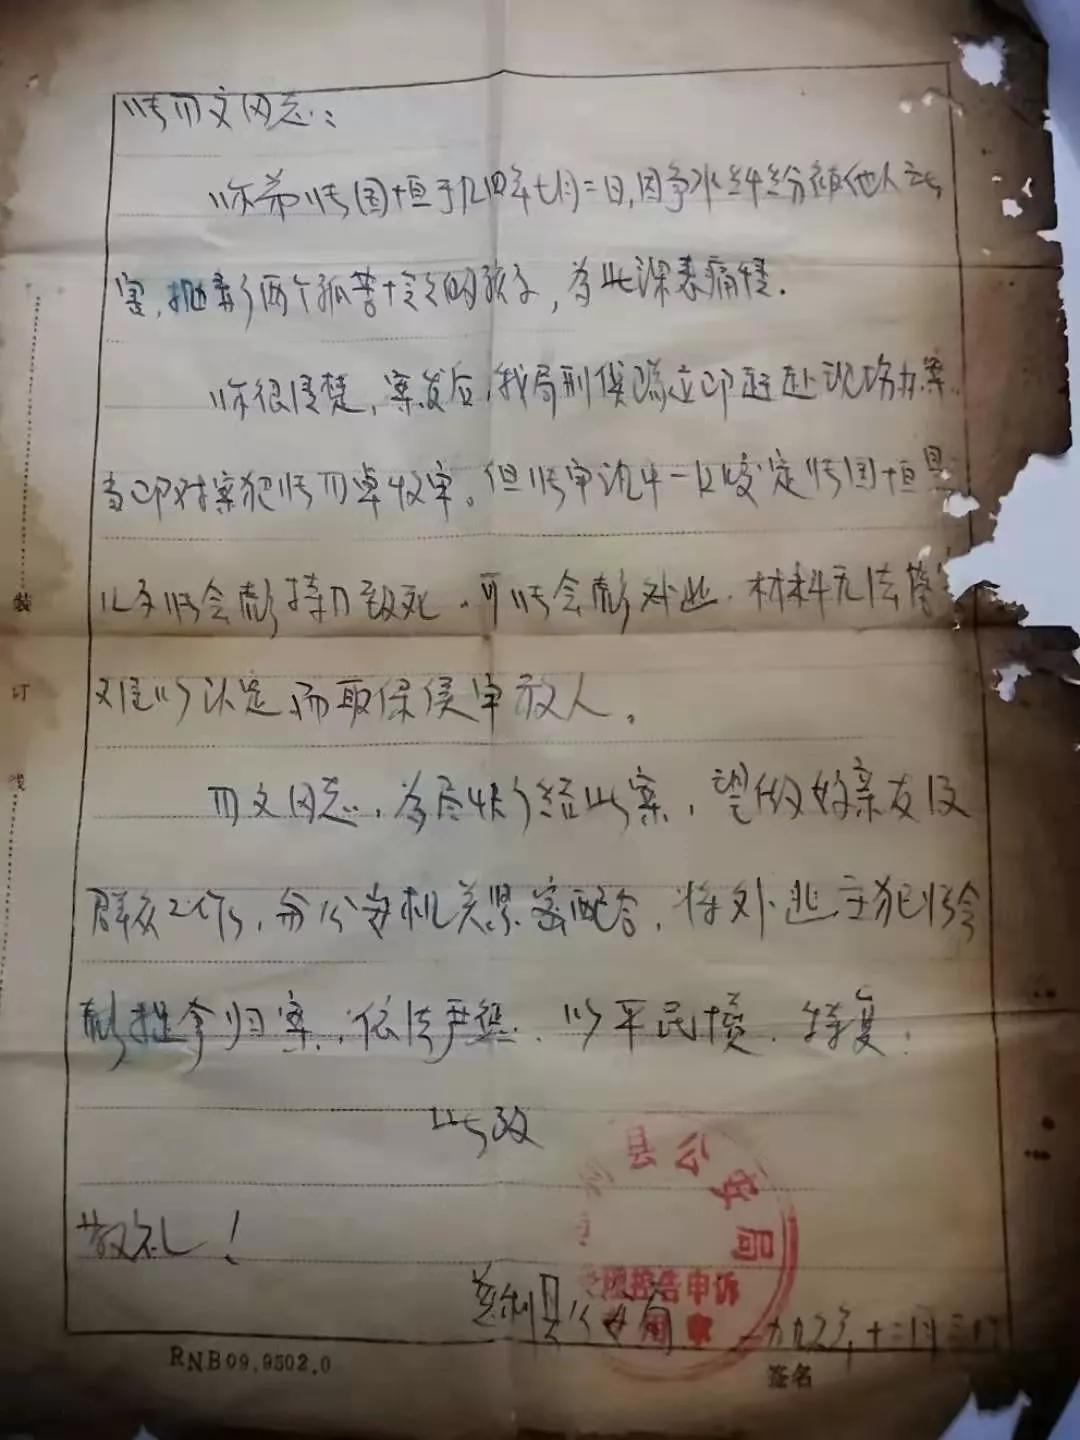 张卯文同志：
你弟张国恒于九四年七月二日，因争水纠纷被他人
害，抛弃了两个孤苦伶仃的孩子，为此深表痛惜.
你很清楚，案发后，我局刑侦队立即赶赴现场办案.
当即对案犯张卯卓收审。但张审讯中一口咬定张国恒是
儿子张会彪持刀致死.可张会彪外逃.材料无法
难以认定而取保候审放人。
卯文同志.为尽快了结此案，望做好亲友及
群众工作，与公安机关紧密配合，将外逃主犯张会
彪捉拿归案，依法严惩.以平民愤.特复：
此致
敬礼！
慈利县公安局
县公安局
控告申诉
十二月三日
RNB09.9502.0
签名
装
订
线